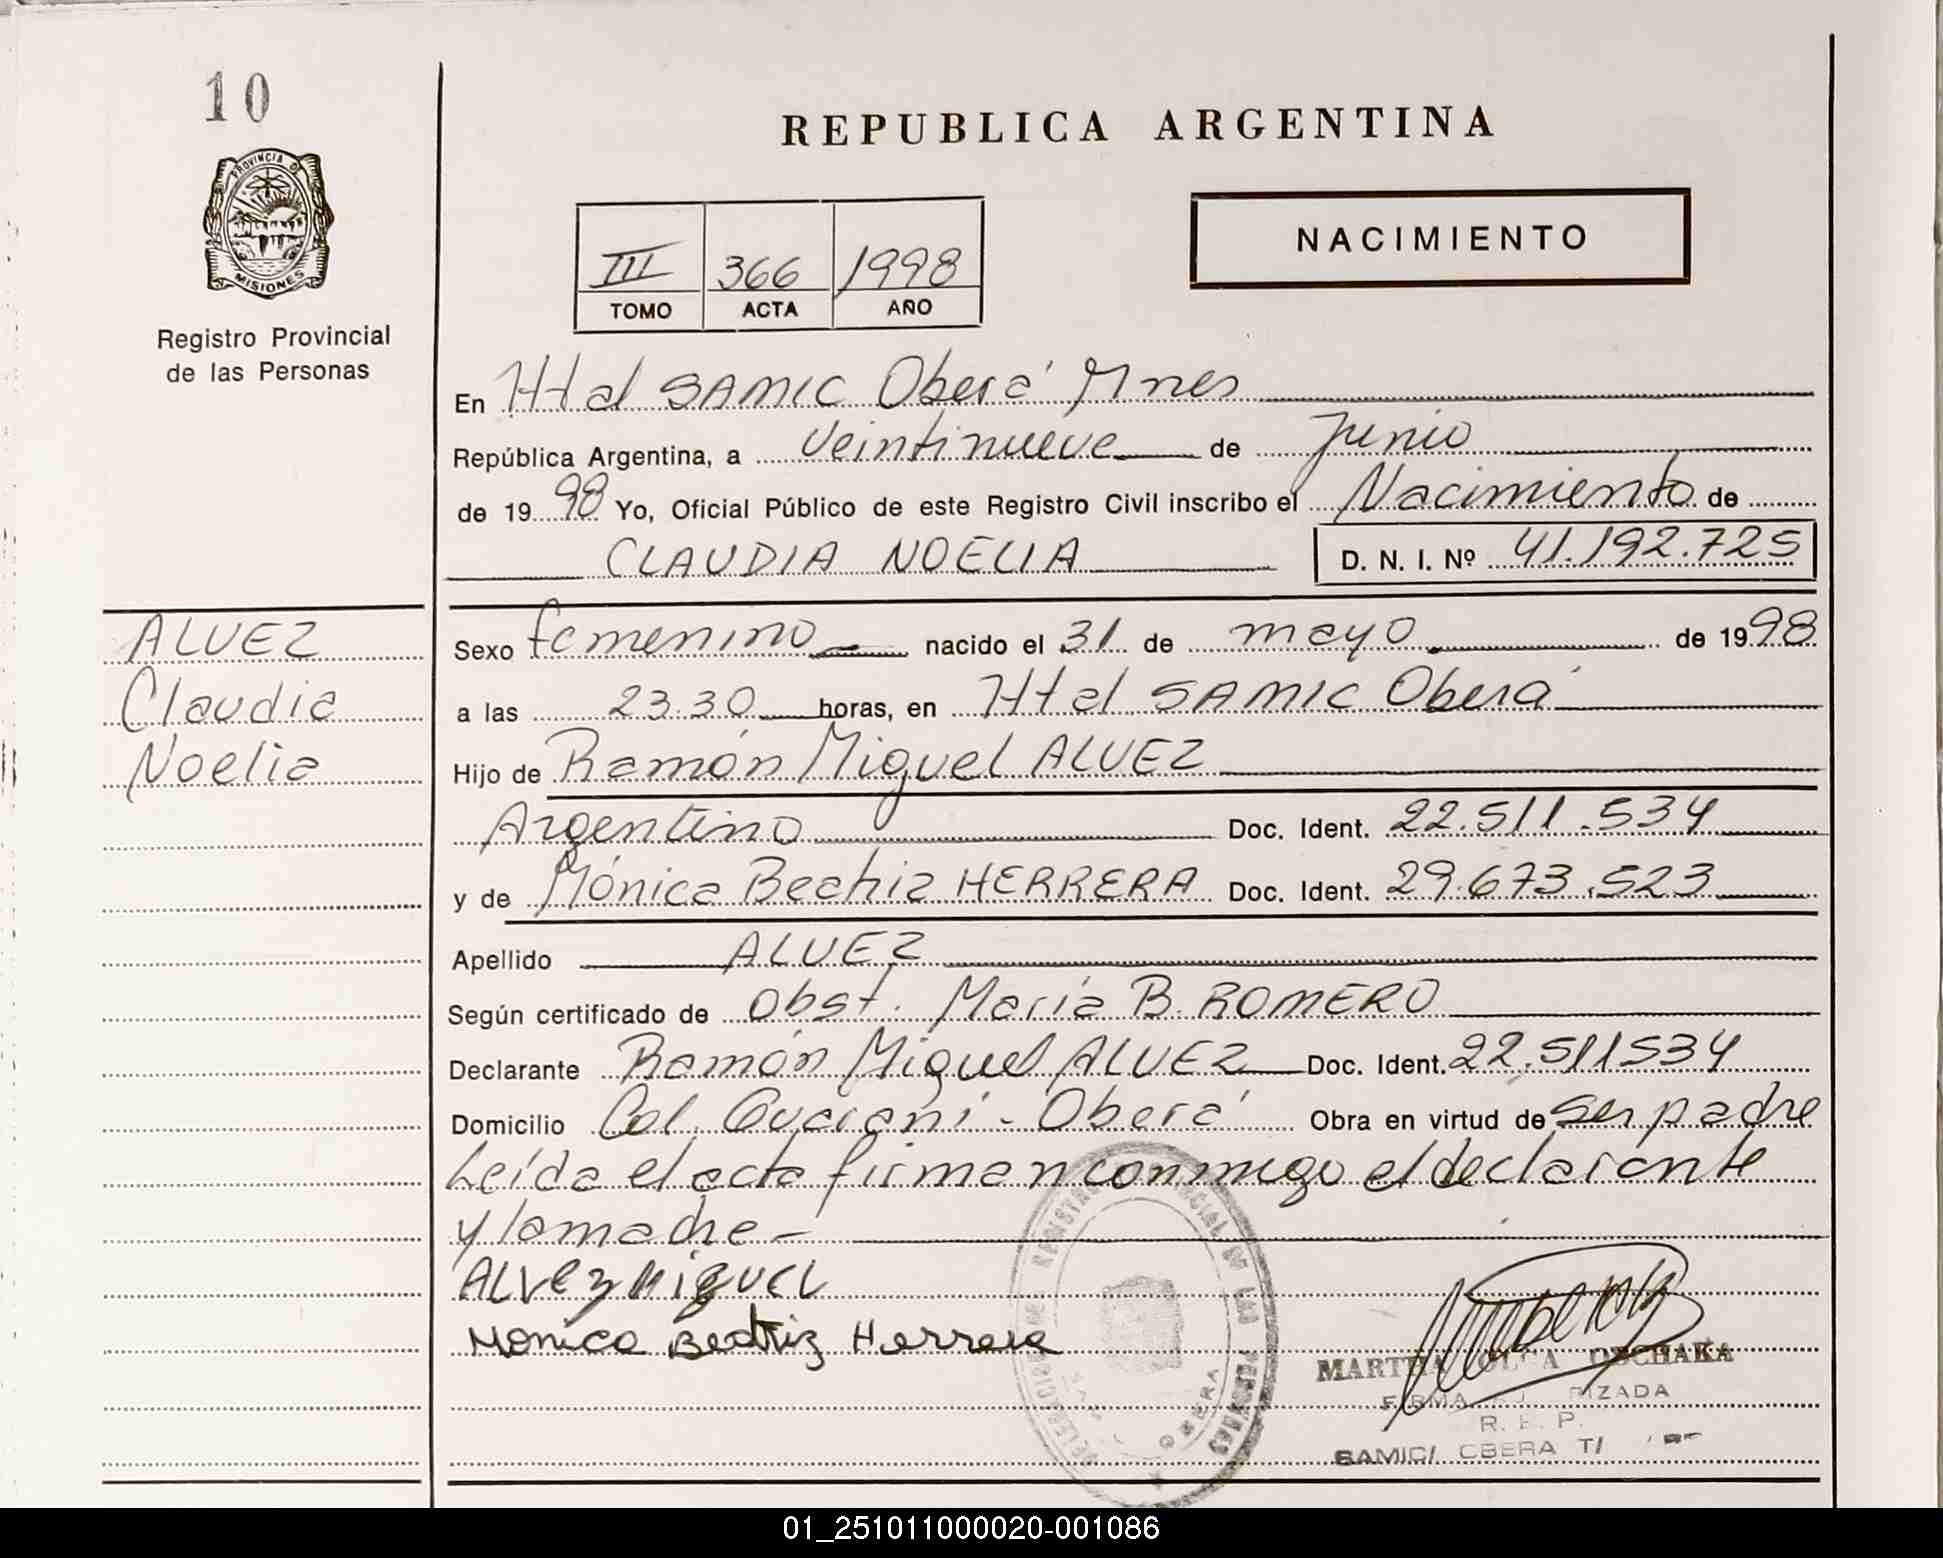 10
PROVINCIA DE
MISIONES
Registro Provincial
de las Personas
REPUBLICA ARGENTINA
III 366 1998
TOMO ACTA AÑO
NACIMIENTO
En Htal SAMIC Oberá Mnes
República Argentina, a veintinueve de Junio
de 1998 Yo, Oficial Público de este Registro Civil inscribo el Nacimiento de
CLAUDIA NOELIA D. N. I. Nº 41.192.725
ALVEZ
Claudia
Noelia
Sexo femenino nacido el 31 de mayo de 1998
a las 23.30 horas, en Htal SAMIC Oberá
Hijo de Ramón Miguel ALVEZ
Argentino Doc. Ident. 22.511.534
y de Mónica Beatriz HERRERA Doc. Ident. 29.673.523
Apellido ALVEZ
Según certificado de Obst. María B. ROMERO
Declarante Ramón Miguel ALVEZ Doc. Ident. 22.511534
Domicilio Col. Guaraní - Oberá Obra en virtud de ser padre
Leída el acta firman conmigo el declarante
y la madre -
ALVEZ MIGUEL
Monica Beatriz Herrera
REGISTRO PROVINCIAL DE LAS PERSONAS
OBERA
MARTHA OLGA
FIRMA
R. P.
SAMIC/ OBERA
01_251011000020-001086